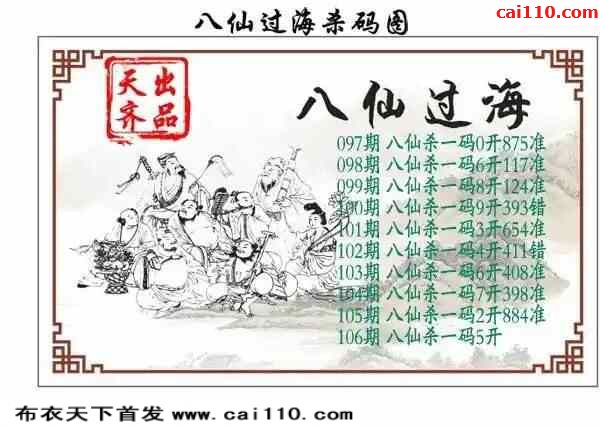 八仙过海杀码图
cai110.com
天齐
出品
八仙过海
097期 八仙杀一码0开875准
098期 八仙杀一码6开117准
099期 八仙杀一码8开124准
100期 八仙杀一码9开393错
101期 八仙杀一码3开654准
102期 八仙杀一码4开411错
103期 八仙杀一码6开408准
104期 八仙杀一码7开398准
105期 八仙杀一码2开884准
106期 八仙杀一码5开
布衣天下首发 www.cai110.com